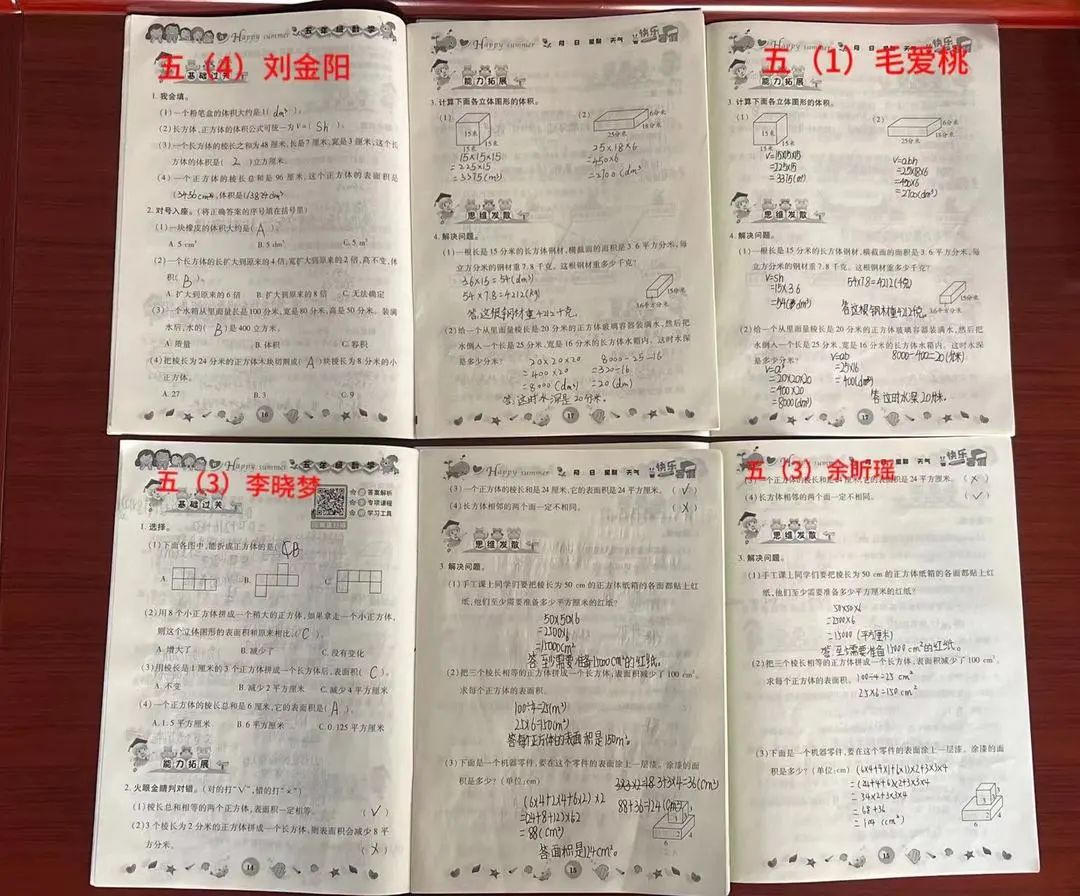 五（4）刘金阳
Happy summer 五年级数学
基础过关
1. 我会填。
(1)一个粉笔盒的体积大约是1( dm³ )。
(2)长方体、正方体的体积公式可统一为 V=( Sh )。
(3)一个长方体的棱长之和为48厘米,长是7厘米,宽是3厘米,这个长
方体的体积是( 2 )立方厘米。
(4)一个正方体的棱长总和是96厘米,这个正方体的表面积是
2. 对号入座。(将正确答案的序号填在括号里)
(1)一块橡皮的体积大约是( A )。
A. 5 cm³ B. 5 dm³ C. 5 m³
(2)一个长方体的长扩大到原来的4倍,宽扩大到原来的2倍,高不变,体
积( B )。
A. 扩大到原来的6倍 B. 扩大到原来的8倍 C. 无法确定
(3)一个水箱从里面量长是100分米,宽是80分米,高是50分米。装满
水后,水的( B )是400立方米。
A. 质量 B. 体积 C. 容积
(4)把棱长为24分米的正方体木块切割成( A )块棱长为8分米的小
正方体。
A. 27 B. 3 C. 9
16
Happy summer 月 日 星期 天气 快乐
能力拓展
3. 计算下面各立体图形的体积。
(1) (2)
15米 15米 15米
6分米 18分米 25分米
15×15×15
=225×15
=3375(m³)
25×18×6
=450×6
=2700(dm³
思维发散
4. 解决问题。
(1)一根长是15分米的长方体钢材,横截面的面积是3.6平方分米。每
立方分米的钢材重7.8千克。这根钢材重多少千克?
3.6×15=54(dm³)
54×7.8=421.2(kg)
15分米
3.6平方分米
答:这根钢材重421.2千克。
(2)给一个从里面量棱长是20分米的正方体玻璃容器装满水,然后把
水倒入一个长是25分米,宽是16分米的长方体水箱内。这时水深
是多少分米?
20×20×20
=400×20
=8000(dm³)
8000÷25÷16
=320÷16
=20(dm)
答:这时水深是20分米。
17
五（1）毛爱桃
Happy summer 月 日 星期 天气 快乐
能力拓展
3. 计算下面各立体图形的体积。
(1) (2)
15米 15米 15米
6分米 18分米 25分米
V=15×15×15
=225×15
=3375(m³)
V=abh
=25×18×6
=450×6
=2700(dm³)
思维发散
4. 解决问题。
(1)一根长是15分米的长方体钢材,横截面的面积是3.6平方分米。每
立方分米的钢材重7.8千克。这根钢材重多少千克?
V=Sh
=15×3.6
=54(dm³)
54×7.8=421.2(千克)
15分米
3.6平方分米
答:这根钢材重421.2千克。
(2)给一个从里面量棱长是20分米的正方体玻璃容器装满水,然后把
水倒入一个长是25分米,宽是16分米的长方体水箱内。这时水深
是多少分米?
=20×20×20
=400×20
=8000(dm³)
V=ab
=25×16
=400(dm²)
8000÷400=20(分米)
答:这时水深20分米。
17
五（3）李晓梦
Happy summer 五年级数学
基础过关
答案解析
专项课程
学习工具
1. 选择。
(1)下面各图中,能折成正方体的是(
A. B. C.
(2)用8个小正方体拼成一个稍大的正方体,如果拿走一个小正方体,
则这个立体图形的表面积和原来相比,( C )。
A. 增大了 B. 减少了 C. 没有变化
(3)用棱长是1厘米的3个正方体拼成一个长方体后,表面积( C )。
A. 不变 B. 减少2平方厘米 C. 减少4平方厘米
(4)一个正方体的棱长总和是6厘米,它的表面积是( A )。
A. 1.5平方厘米 B. 6平方厘米 C. 0.125平方厘米
能力拓展
2. 火眼金睛判对错。(对的打“√”,错的打“×”)
(1)棱长总和相等的两个正方体,表面积一定相等。 ( √ )
(2)3个棱长为2分米的正方体拼成一个长方体,则表面积会减少8平
方分米。 ( × )
14
Happy summer 月 日 星期 天气 快乐
(3)一个正方体的棱长和是24厘米,它的表面积是24平方厘米。 ( √ )
(4)长方体相邻的两个面一定不相同。 ( × )
思维发散
3. 解决问题。
(1)手工课上同学们要把棱长为50 cm的正方体纸箱的各面都贴上红
纸,他们至少需要准备多少平方厘米的红纸?
50×50×6
=2500×6
=15000cm²
答:至少需要准备15000cm²的红纸。
(2)把三个棱长相等的正方体拼成一个长方体,表面积减少了100 cm²,
求每个正方体的表面积。
100÷4=25(m²)
25×6=150(m²)
答:每个正方体的表面积是150m²。
(3)下面是一个机器零件,要在这个零件的表面涂上一层漆。涂漆的面
积是多少?(单位:cm)
3×3×4=36(cm²)
(6×4+2×4+6×2)×2
=(24+8+12)×2
=88(cm²)
88+36=124(cm²)
答:面积是124cm²。
15
五（3）余昕瑶
Happy summer 月 日 星期 天气 快乐
(3)一个正方体的棱长和是24厘米,它的表面积是24平方厘米。 ( × )
(4)长方体相邻的两个面一定不相同。 ( √ )
思维发散
3. 解决问题。
(1)手工课上同学们要把棱长为50 cm的正方体纸箱的各面都贴上红
纸,他们至少需要准备多少平方厘米的红纸?
50×50×6
=2500×6
=15000(平方厘米)
答:至少需要准备15000cm²的红纸。
(2)把三个棱长相等的正方体拼成一个长方体,表面积减少了100 cm²,
求每个正方体的表面积。
100÷4=25 cm²
25×6=150 cm²
(3)下面是一个机器零件,要在这个零件的表面涂上一层漆。涂漆的面
积是多少?(单位:cm)
=34×2+3×3×4
=68+36
=104(cm²)
15